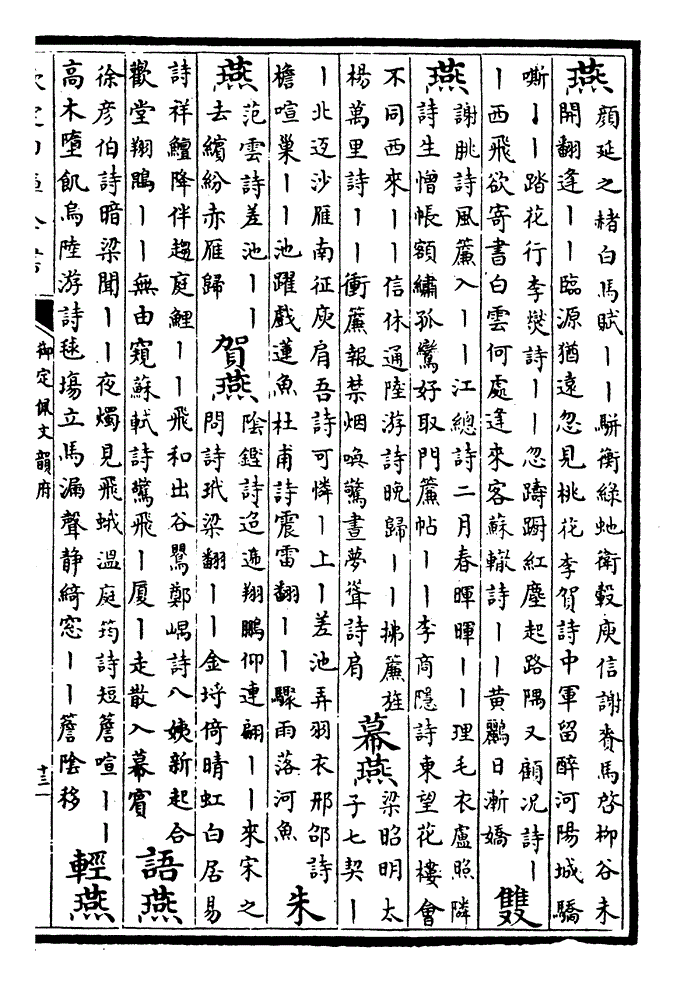 燕
顔延之赭白馬賦丨丨駢衡綠虵衛轂庾信謝賚馬啓柳谷未
開翻逢丨丨臨源猶遠忽見桃花李賀詩中軍留醉河陽城驕
嘶丨丨踏花行李爕詩丨丨忽躊蹰紅塵起路隅又顧况詩丨
丨西飛欲寄書白雲何處逢來客蘇轍詩丨丨黃鸝日漸嬌
雙
燕
謝朓詩風簾入丨丨江總詩二月春暉暉丨丨理毛衣盧照隣
詩生憎帳額繡孤鸞好取門簾帖丨丨李商隠詩東望花樓會
不同西來丨丨信休通陸游詩晚歸丨丨拂簾旌
楊萬里詩丨丨衝簾報禁烟喚驚晝夢聳詩肩
幕燕
梁昭明太
子七契丨
丨北迈沙雁南征庾肩吾詩可憐丨上丨差池弄羽衣邢邵詩
檐喧巢丨丨池躍戲蓮魚杜甫詩震雷翻丨丨驟雨落河魚
朱
燕
范雲詩差池丨丨
去繽紛赤雁歸
賀燕
陰鏗詩迢遞翔鵬仰連翩丨丨來宋之
問詩玳梁翻丨丨金埒倚晴虹白居易
詩祥鱣降伴趨庭鯉丨丨飛和出谷鸎鄭嵎詩八姨新起合
歡堂翔鵾丨丨無由窺蘇軾詩驚飛丨厦丨走散入幕賓
語燕
徐彦伯詩暗梁聞丨丨夜燭見飛蛾温庭筠詩短簷喧丨丨
高木墮飢烏陸游詩毬塲立馬漏聲静綺窓丨丨簷陰移
輕燕
欽定四庫全書
御定佩文韻府
十三